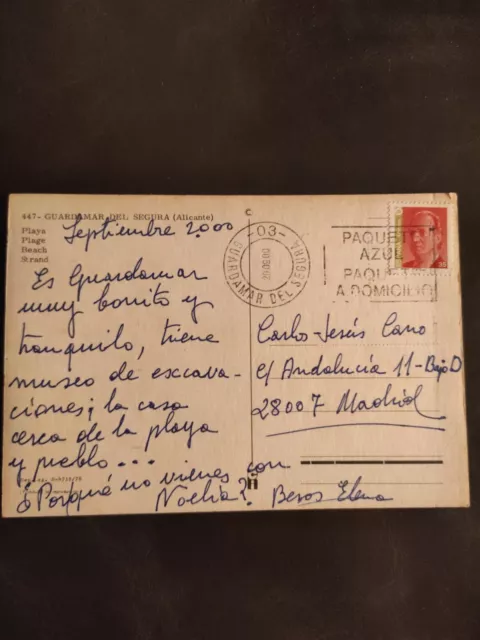 447- GUARDAMAR DEL SEGURA (Alicante)
Playa
Plage
Beach
Strand
Septiembre 2.000
Es Guardamar
muy bonito y
tranquilo, tiene
museo de excava-
ciones; la casa
cerca de la playa
y pueblo...
¿Porqué no vienes con
Noelia? Besos Elena
C
-03-
GUARDAMAR DEL SEGURA
PAQUETE
AZUL
A DOMICILIO
Carlos-Jesús Cano
c/ Andalucía 11-Bajo D
28007 Madrid